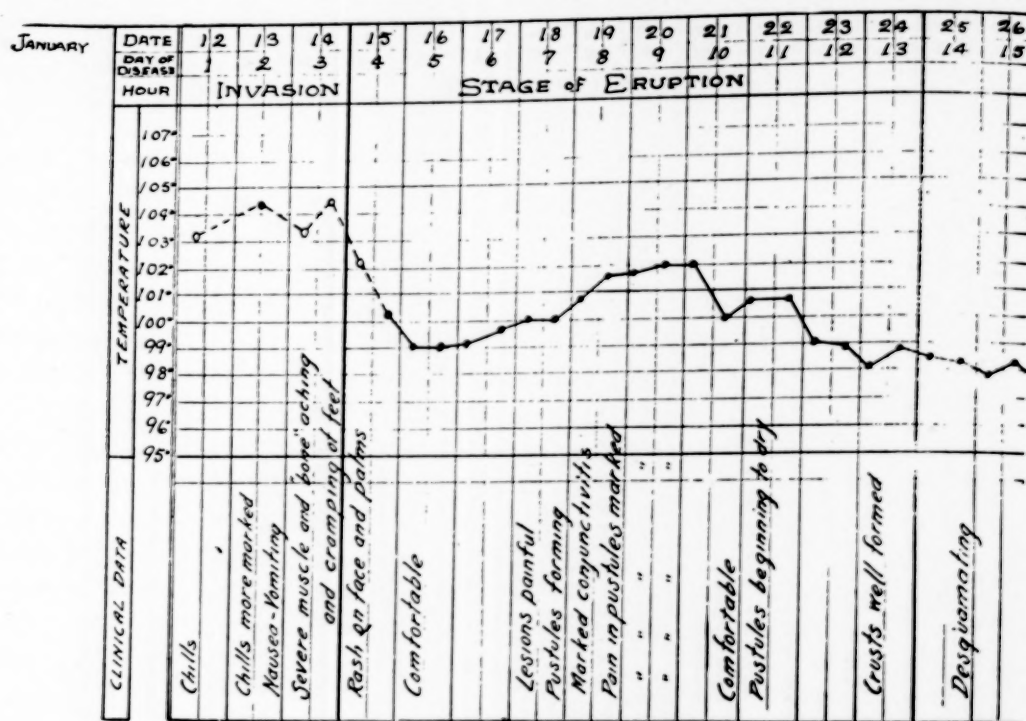 JANUARY
DATE 12 13 14 15 16 17 18 19 20 21 22 23 24 25 26
DAY OF DISEASE 1 2 3 4 5 6 7 8 9 10 11 12 13 14 15
HOUR INVASION STAGE OF ERUPTION
TEMPERATURE
107°
106°
105°
104°
103°
102°
101°
100°
99°
98°
97°
96°
95°
CLINICAL DATA
Chills
Chills more marked
Nausea-Vomiting
Severe muscle and "bone" aching
and cramping of feet
Rash on face and palms
Comfortable
Lesions painful
Pustules forming
Marked conjunctivitis
Pain in pustules marked
" " " " "
" " " " "
Comfortable
Pustules beginning to dry
Crusts well formed
Desquamating